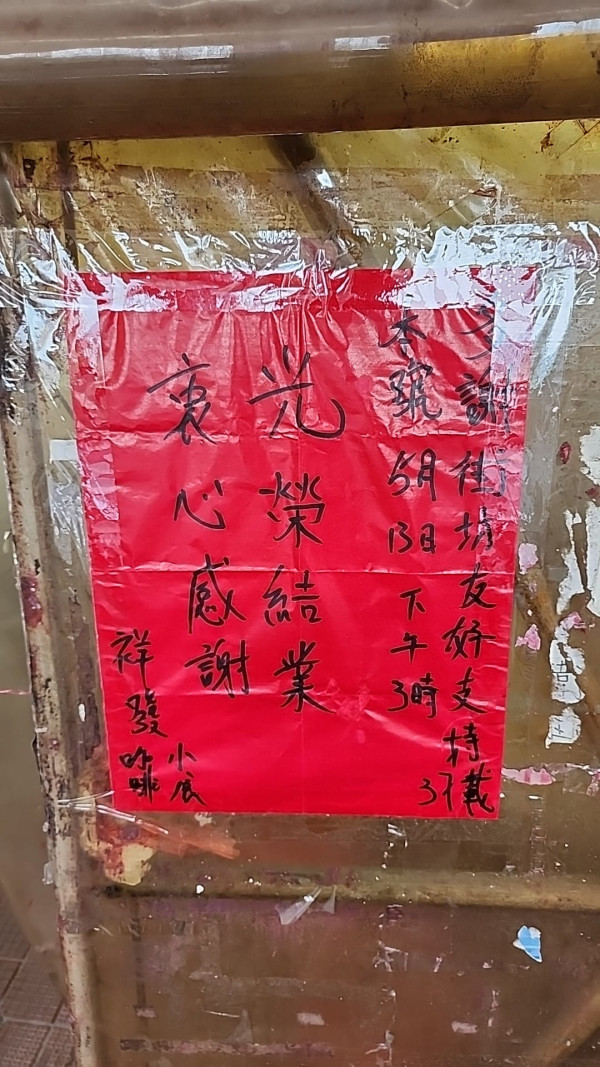 多謝街坊友好支持37載
本號5月13日下午3時
光榮結業
衷心感謝
祥發咖啡小食